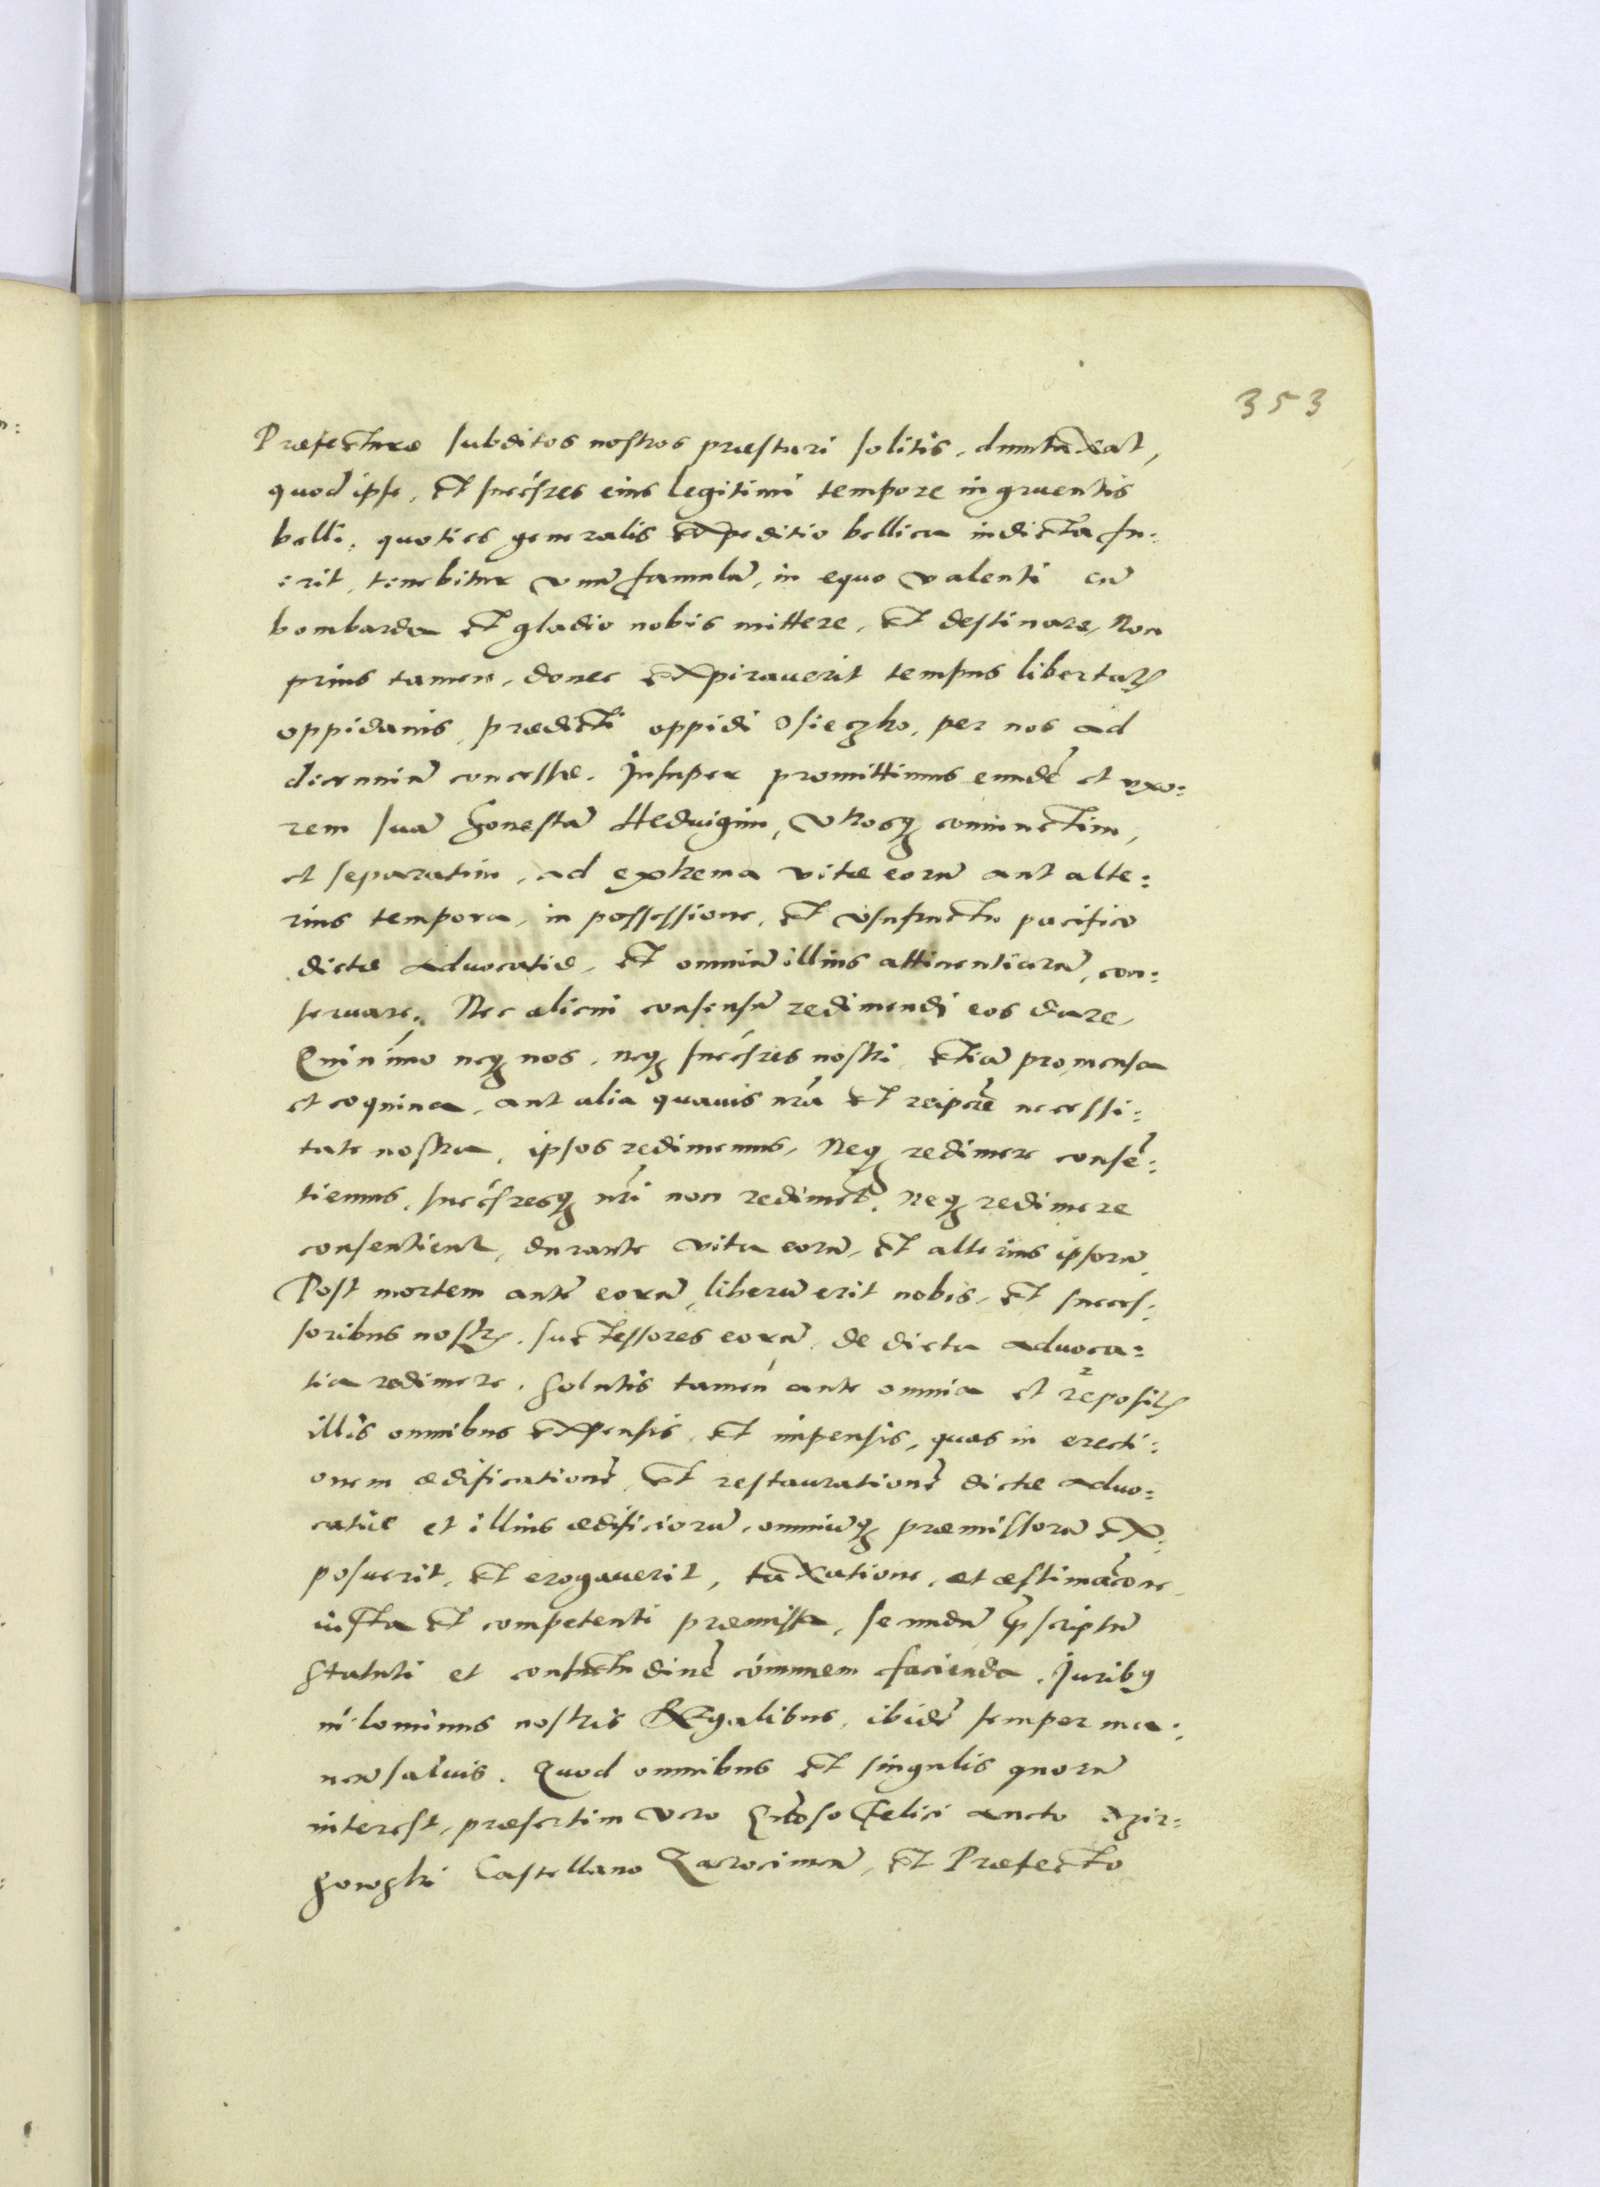 353
Præfecturæ subditos nostros præstari solitis, dumtaxat,
quod ipse, et succsres eius legitimi tempore ingruentis
belli, quoties generalis expeditio bellica indicta fu:
erit, tenebitur unū famulū, in equo valenti cū
bombarda et gladio nobis mittere, et destinare, Non
prius tamen, donec expirauerit tempus libertatꝭ
oppidanis, prædicti oppidi Osieczko, per nos ad
decennium concessæ. Insuper promittimus eundē et uxo:
rem suā honestā Heduigim, utrosqꝫ coniunctim,
et separatim, ad extrema vitæ eorū aut alte:
rius tempora, in possessione, et usufructu pacifico
dictæ aduocatiæ, et omniū illius attinentiarū, con:
seruare. Nec alicui consensū redimendi eos dare,
Quinimo neqꝫ nos, neqꝫ succsres nostri, etiā pro mensa
et coquina, aut alia quauis nrā et reipcæ necessi:
tate nostra, ipsos redimemus, Neqꝫ redimere consē:
tiemus, succsresqꝫ nri non rediment, Neqꝫ redimere
consentient, durante vita eorū, et alterius ipsorū.
Post mortem autē eorū, liberū erit nobis, et succes:
soribus nostrꝭ, successores eorū, de dicta aduoca:
tia redimere, solutis tamen ante omnia et repositꝭ
illis omnibus expensis, et impensis, quas in erecti:
onem ædificationē, et restaurationē dictæ aduo:
catiæ et illius ædificiorū, omniūqꝫ præmissorū ex:
posuerit, et erogauerit, taxatione, et æstimacone
iusta et competenti præmissa, secundū pscriptū
statuti et consuetudinē cōmunem facienda. Juribꝫ
nilominus nostris Regalibus, ibidē semper ma:
nen saluis. Quod omnibus et singulis quorū
interest, præsertim vero Gnoso Felici ancto Szir:
howski Castellano Zacrocimen, et Præfecto